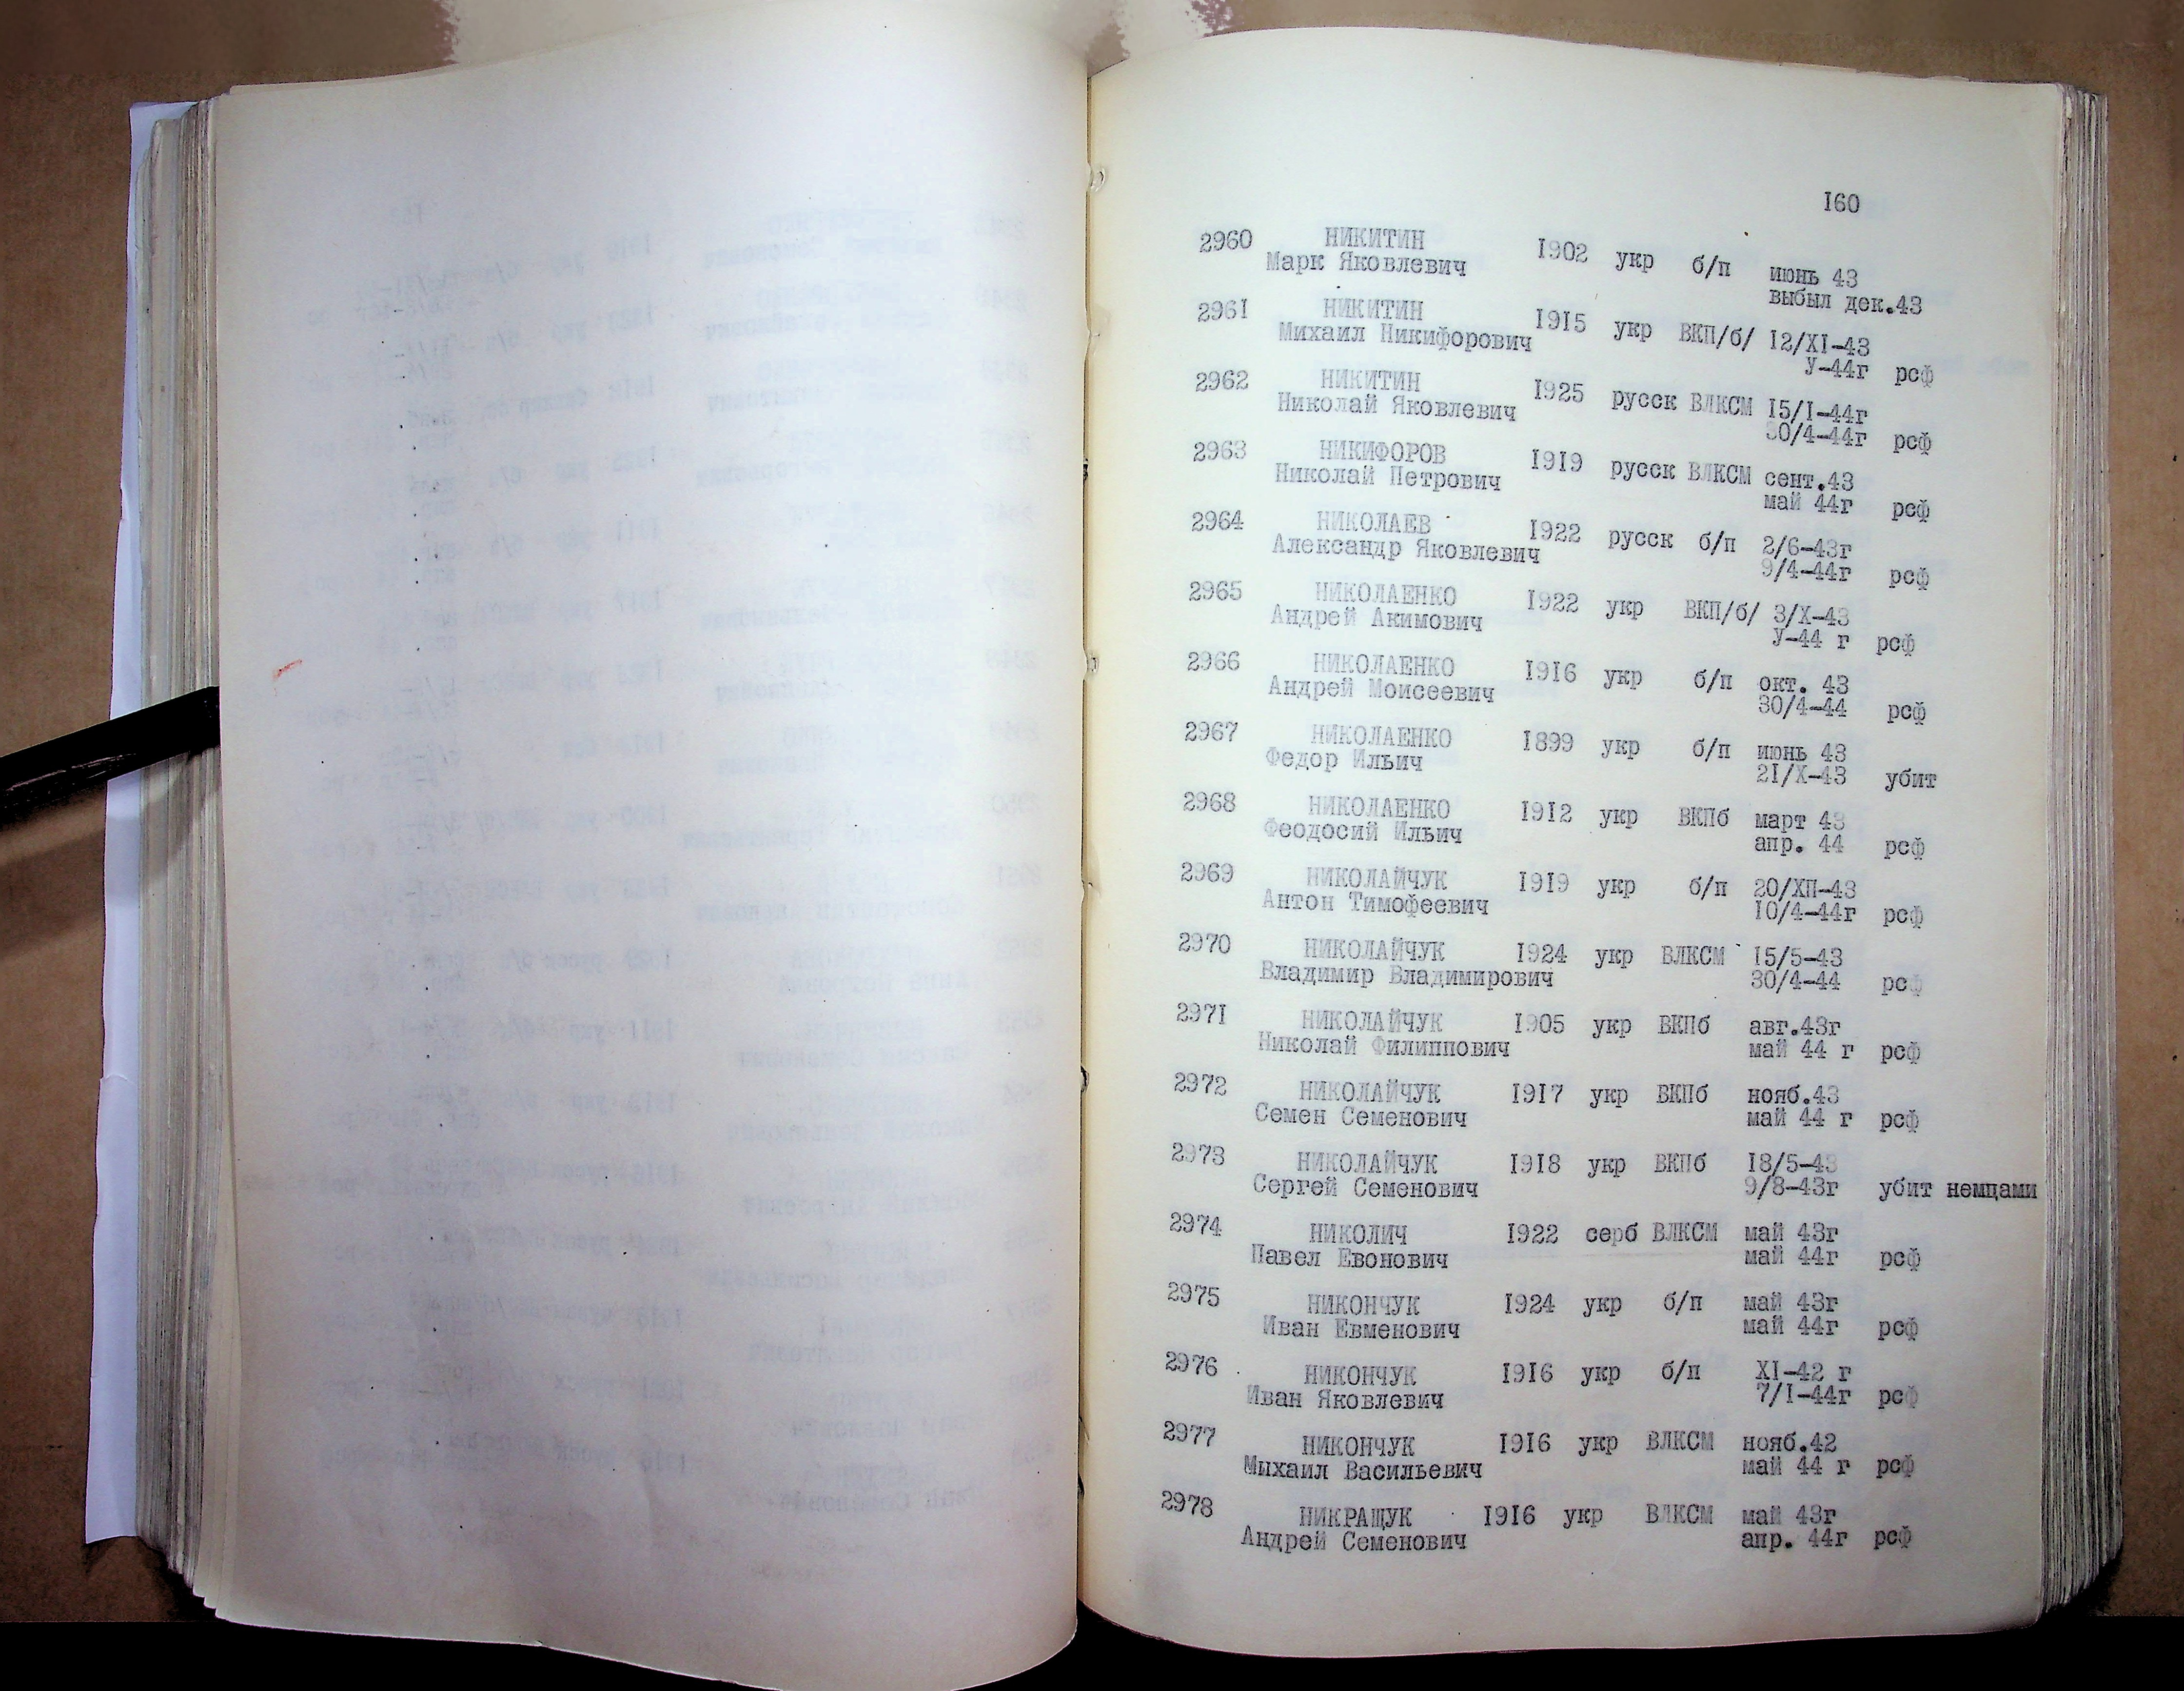 160
2960 НИКИТИН 1902 укр б/п июнь 43
Марк Яковлевич выбыл дек.43
2961 НИКИТИН 1915 укр ВКП/б/ 12/XI-43
Михаил Никифорович У-44г рсф
2962 НИКИТИН 1925 русск ВЛКСМ 15/I-44г
Николай Яковлевич 30/4-44г рсф
2963 НИКИФОРОВ 1919 русск ВЛКСМ сент.43
Николай Петрович май 44г рсф
2964 НИКОЛАЕВ 1922 русск б/п 2/6-43г
Александр Яковлевич 9/4-44г рсф
2965 НИКОЛАЕНКО 1922 укр ВКП/б/ 3/X-43
Андрей Акимович У-44 г рсф
2966 НИКОЛАЕНКО 1916 укр б/п окт. 43
Андрей Моисеевич 30/4-44 рсф
2967 НИКОЛАЕНКО 1899 укр б/п июнь 43
Федор Ильич 21/X-43 убит
2968 НИКОЛАЕНКО 1912 укр ВКПб март 43
Феодосий Ильич апр. 44 рсф
2969 НИКОЛАЙЧУК 1919 укр б/п 20/ХП-43
Антон Тимофеевич 10/4-44г рсф
2970 НИКОЛАЙЧУК 1924 укр ВЛКСМ 15/5-43
Владимир Владимирович 30/4-44 рсф
2971 НИКОЛАЙЧУК 1905 укр ВКПб авг.43г
Николай Филиппович май 44 г рсф
2972 НИКОЛАЙЧУК 1917 укр ВКПб нояб.43
Семен Семенович май 44 г рсф
2973 НИКОЛАЙЧУК 1918 укр ВКПб 18/5-43
Сергей Семенович 9/8-43г убит немцами
2974 НИКОЛИЧ 1922 серб ВЛКСМ май 43г
Павел Евонович май 44г рсф
2975 НИКОНЧУК 1924 укр б/п май 43г
Иван Евменович май 44г рсф
2976 НИКОНЧУК 1916 укр б/п XI-42 г
Иван Яковлевич 7/I-44г рсф
2977 НИКОНЧУК 1916 укр ВЛКСМ нояб.42
Мыхаил Васильевич май 44 г рсф
2978 НИКРАЩУК 1916 укр ВЛКСМ май 43г
Андрей Семенович апр. 44г рсф